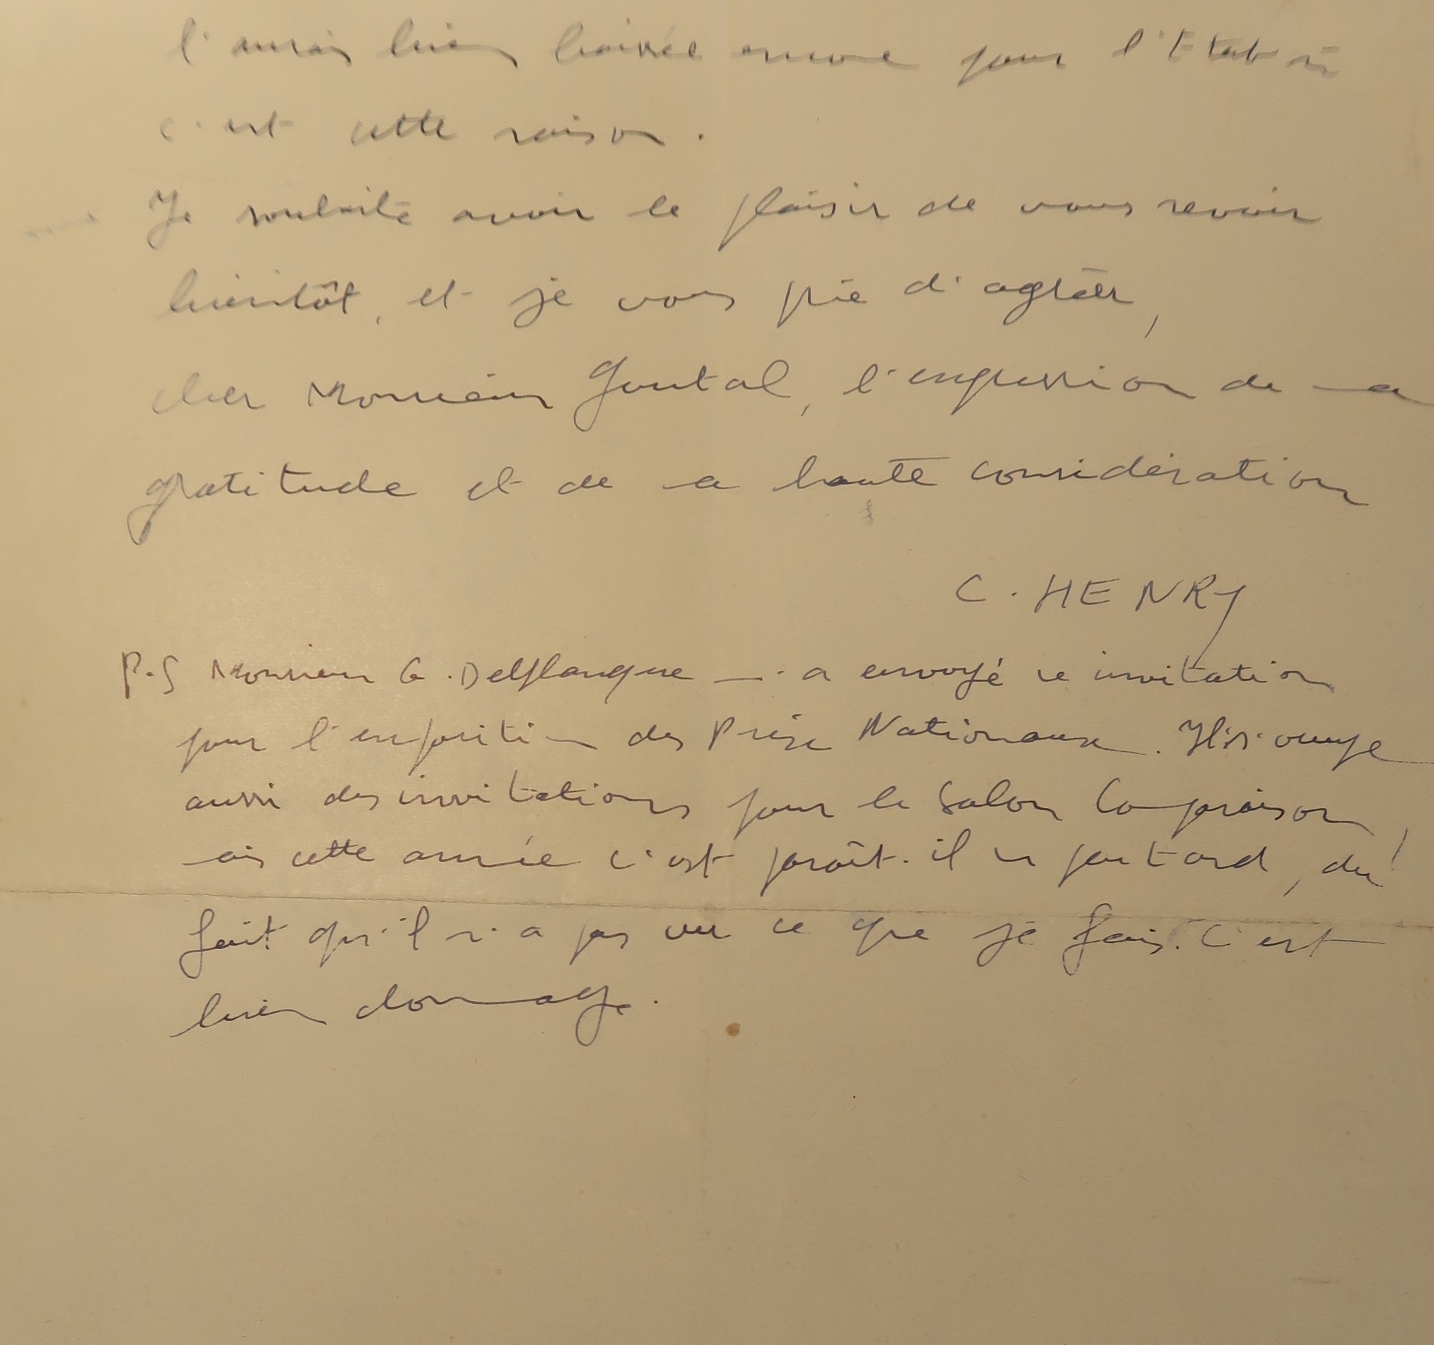 l'aurais bien baissée encore pour l'Etat si
c'est cette raison.
Je souhaite avoir le plaisir de vous revoir
bientôt, et je vous prie d'agréer,
cher Monsieur Goutal, l'expression de ma
gratitude et de ma haute considération
C. HENRY
P.S Monsieur G. Delflangue m'a envoyé une invitation
pour l'exposition des Prix Nationaux. Il s'occupe
aussi des invitations pour le Salon Comparaison,
mais cette année c'est paraît-il un peu tard, du
fait qu'il n'a pas vu ce que je fais. C'est
bien dommage.